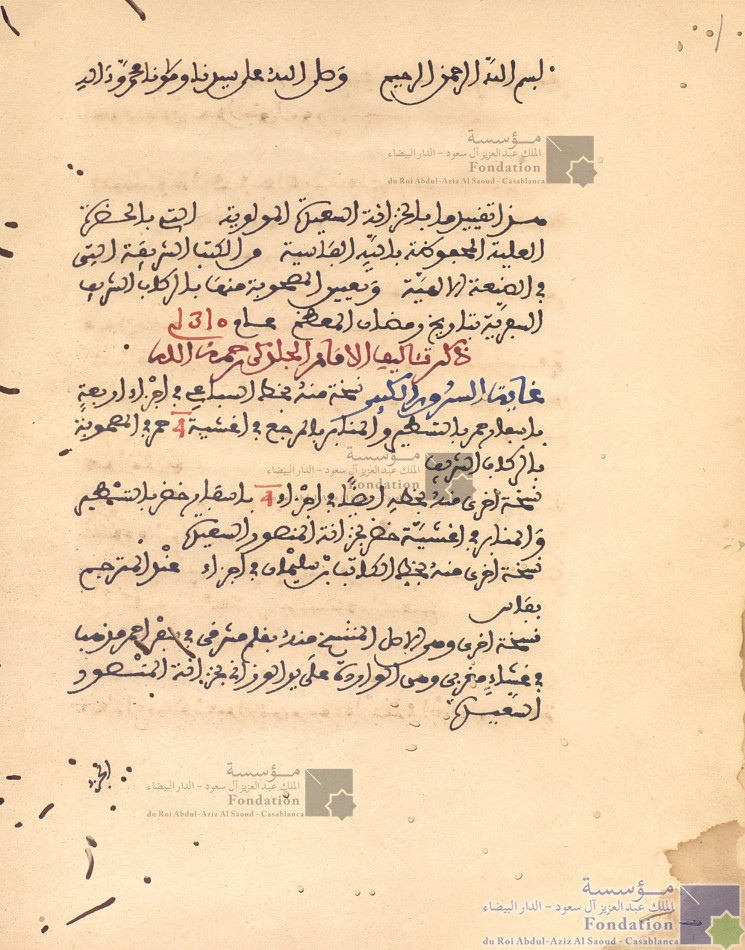 بسم الله الرحمن الرحيم وصلى الله على سيدنا ومولانا محمد وءاله
مؤسسة
الملك عبد العزيز آل سعود - الدار البيضاء
Fondation
du Roi Abdul-Aziz Al Saoud - Casablanca
هذا تقييد ما بالخزانة السعيدة المولوية التي بالحضرة
العلية المحفوظة بالله الفاسية من الكتب الشريفة التي
في الصنعة الإلهية وتعيين المصحوبة منها بالركاب الشريف
بتاريخ رمضان المعظم عام 1310
ذكر تئاليف الإمام الجلدكي رحمه الله
غاية السرور الكبير نسخة منه بخط السباعي في أجزاء أربعة
بأسفار حمر بالتسطير في أغشية 4 حمر في المصحوبة
بالركاب الشريف
مؤسسة
الملك عبد العزيز آل سعود - الدار البيضاء
Fondation
نسخة أخرى منه بخطه أيضا في أجزاء 4 بأسفار خضر بالتسطير
في أغشية خضر بخزانة المنصور السعيدة
نسخة أخرى منه بخط الكاتب بن سليمان في أجزاء عند المترجم
بفاس
نسخة أخرى وهي الأصل المنتسخ منه بقلم مشرقي في سفر أحمر مذهب
في غشاء مغربي وهي الواردة على يد الوزاني بخزانة المنصور
السعيدة
مؤسسة
الملك عبد العزيز آل سعود - الدار البيضاء
Fondation
du Roi Abdul-Aziz Al Saoud - Casablanca
مؤسسة
الملك عبد العزيز آل سعود - الدار البيضاء
Fondation
du Roi Abdul-Aziz Al Saoud - Casablanca